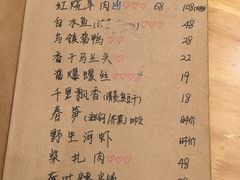 红烧羊肉 ♡ 68 108
白水鱼 ♡♡♡ 48
乌镇酱鸭 ♡♡ 28
香干马兰头 ♡ 22
酱爆螺丝 ♡♡♡ 19
千里飘香 (臭豆干) 18
春笋 时价
野生河虾 时价
柴扎肉 ♡♡♡ 48